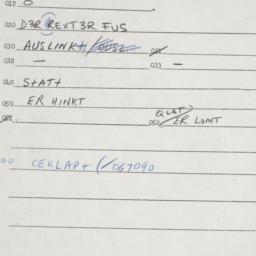 010 0
020 D3R REXT3R FUS
030 AUSLINKt
032 — 033 —
040 StAtt
050 ER HINKT QLAT
052 ER LOMT
CEKLAPt (/067090